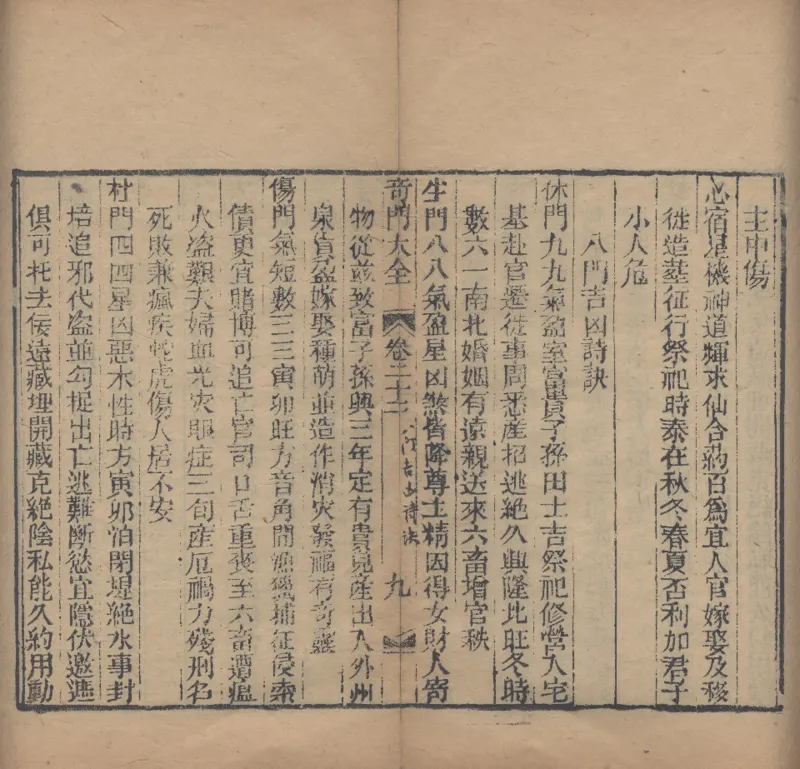 主中傷
心宿星機神道輝求仙合葯百為宜入官嫁娶及移
徙造墓征行祭祀時泰在秋冬春夏否利加君子
小人危
八門吉凶詩訣
休門九九氣盈室富貴子孫田土吉祭祀修營入宅
基赴官遷徙事周悉産招逃絶久興隆北旺冬時
數六一南北婚姻有遠親送來六畜增官秩
生門八八氣盈星凶煞皆降尊土精因得女財人寄
奇門大全 卷二十三 八門吉凶詩訣 九
物從茲致富子孫興三年定有貴兒産出入外州
泉貨盈嫁娶種萌並造作消灾發福有奇靈
傷門氣短數三三寅卯旺方音角間漁獵捕征侵索
債更宜賭博可追亡官司口舌重喪至六畜遭瘟
火盗艱夫婦血光灾眼症三旬産厄禍力殘刑名
死敗兼瘋疾蛇虎傷人居不安
杜門四四星凶惡木性時方寅邜泊閉堤絶水事封
培追邪代盗並勾捉出亡逃難斷慾宜隱伏邀遮
俱可托去佞遠藏埋開藏克絶陰私能久約用動